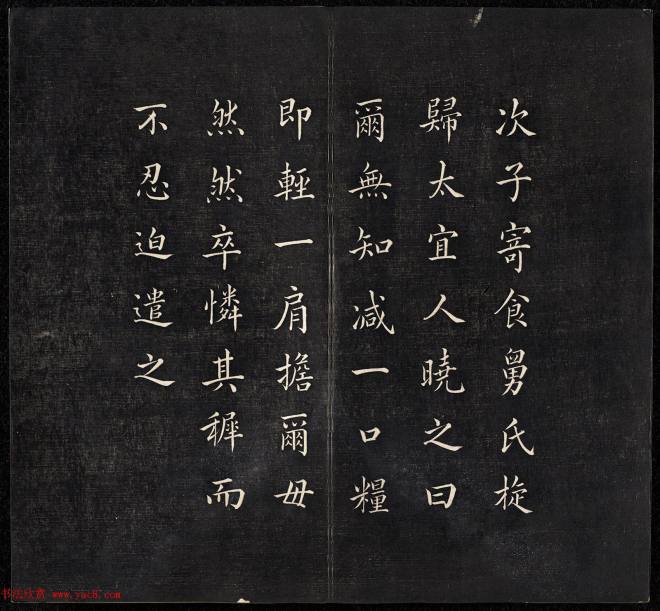 次子寄食舅氏旋
歸太宜人曉之曰
爾無知减一口糧
即輕一肩擔爾毋
然然卒憐其穉而
不忍迫遣之
书法欣赏 www.yac8.com